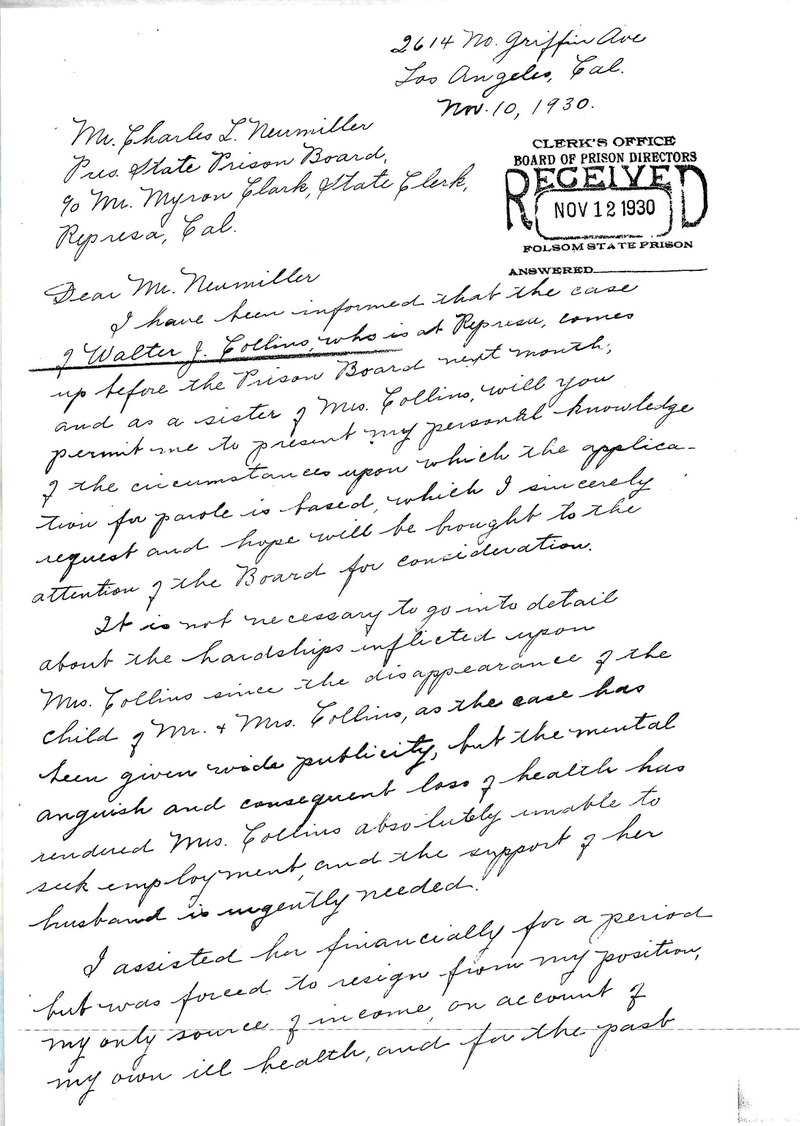 2614 No. Griffin Ave
Los Angeles, Cal.
Nov. 10, 1930.
Mr. Charles L. Neumiller
Pres. State Prison Board,
℅ Mr. Myron Clark, State Clerk,
Represa, Cal.
CLERK'S OFFICE
BOARD OF PRISON DIRECTORS
RECEIVED
NOV 12 1930
FOLSOM STATE PRISON
ANSWERED
Dear Mr. Neumiller
I have been informed that the case
of Walter J. Collins, who is at Represa, comes
up before the Prison Board next month;
and as a sister of Mrs. Collins, will you
permit me to present my personal knowledge
of the circumstances upon which the applica-
tion for parole is based, which I sincerely
request and hope will be brought to the
attention of the Board for consideration.
It is not necessary to go into detail
about the hardships inflicted upon
Mrs. Collins since the disappearance of the
child of Mr. & Mrs. Collins, as the case has
been given wide publicity, but the mental
anguish and consequent loss of health has
rendered Mrs. Collins absolutely unable to
seek employment, and the support of her
husband is urgently needed.
I assisted her financially for a period
but was forced to resign from my position,
my only source of income, on account of
my own ill health, and for the past